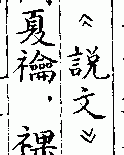 《說文》
夏禴，祼